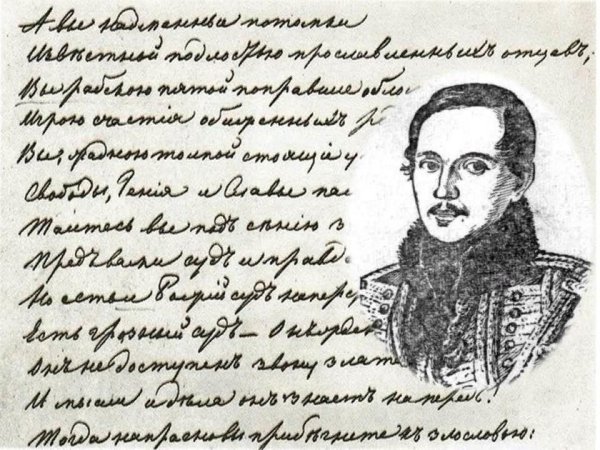 А вы надменные потомки
Извѣстной подлостью прославленныхъ отцевъ,
Вы рабскою пятой поправшие обло
Игрою счастія обиженныхъ р
Вы, жадною толпой стоящіе у
Свободы, Генія и Славы пал
Таитесь вы подъ сѣнію з
Предъ вами судъ и правд
Но есть и Божій судъ наперс
Есть грозный судъ — Онъ
Онъ не доступенъ звону злата
И мысли и дѣла онъ знаетъ напередъ!
Тогда напрасно вы прибѣгнете къ злословью: